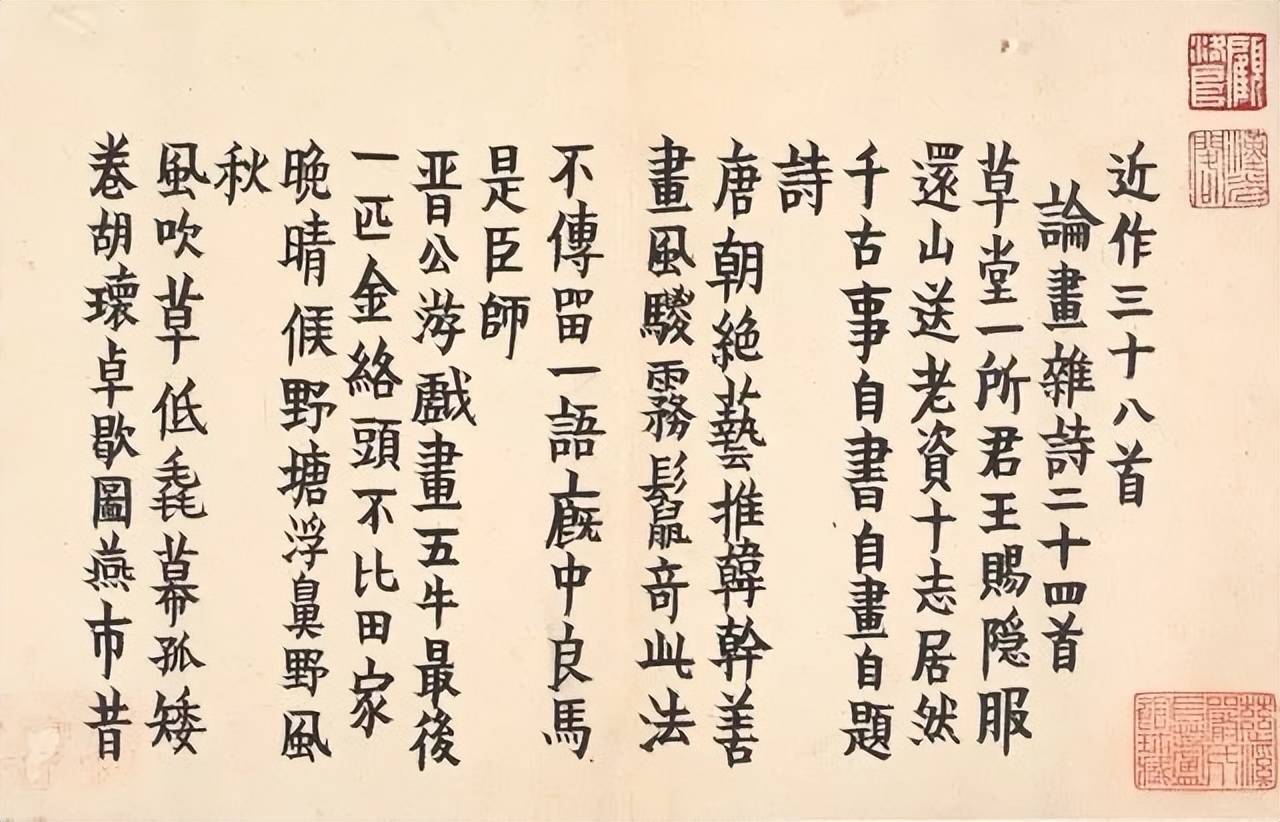 近作三十八首
論畫雜詩二十四首
草堂一所君王賜隐服
還山送老資十志居然
千古事自書自畫自題
詩
唐朝絶藝推韓幹善
畫風騣霧鬛竒此法
不傳畱一語廐中良馬
是臣師
晋公游戲畫五牛最後
一匹金絡頭不比田家
晚晴候野塘浮鼻野風
秋
風吹草低毳幕孤矮
卷胡瓌卓歇圖燕市昔